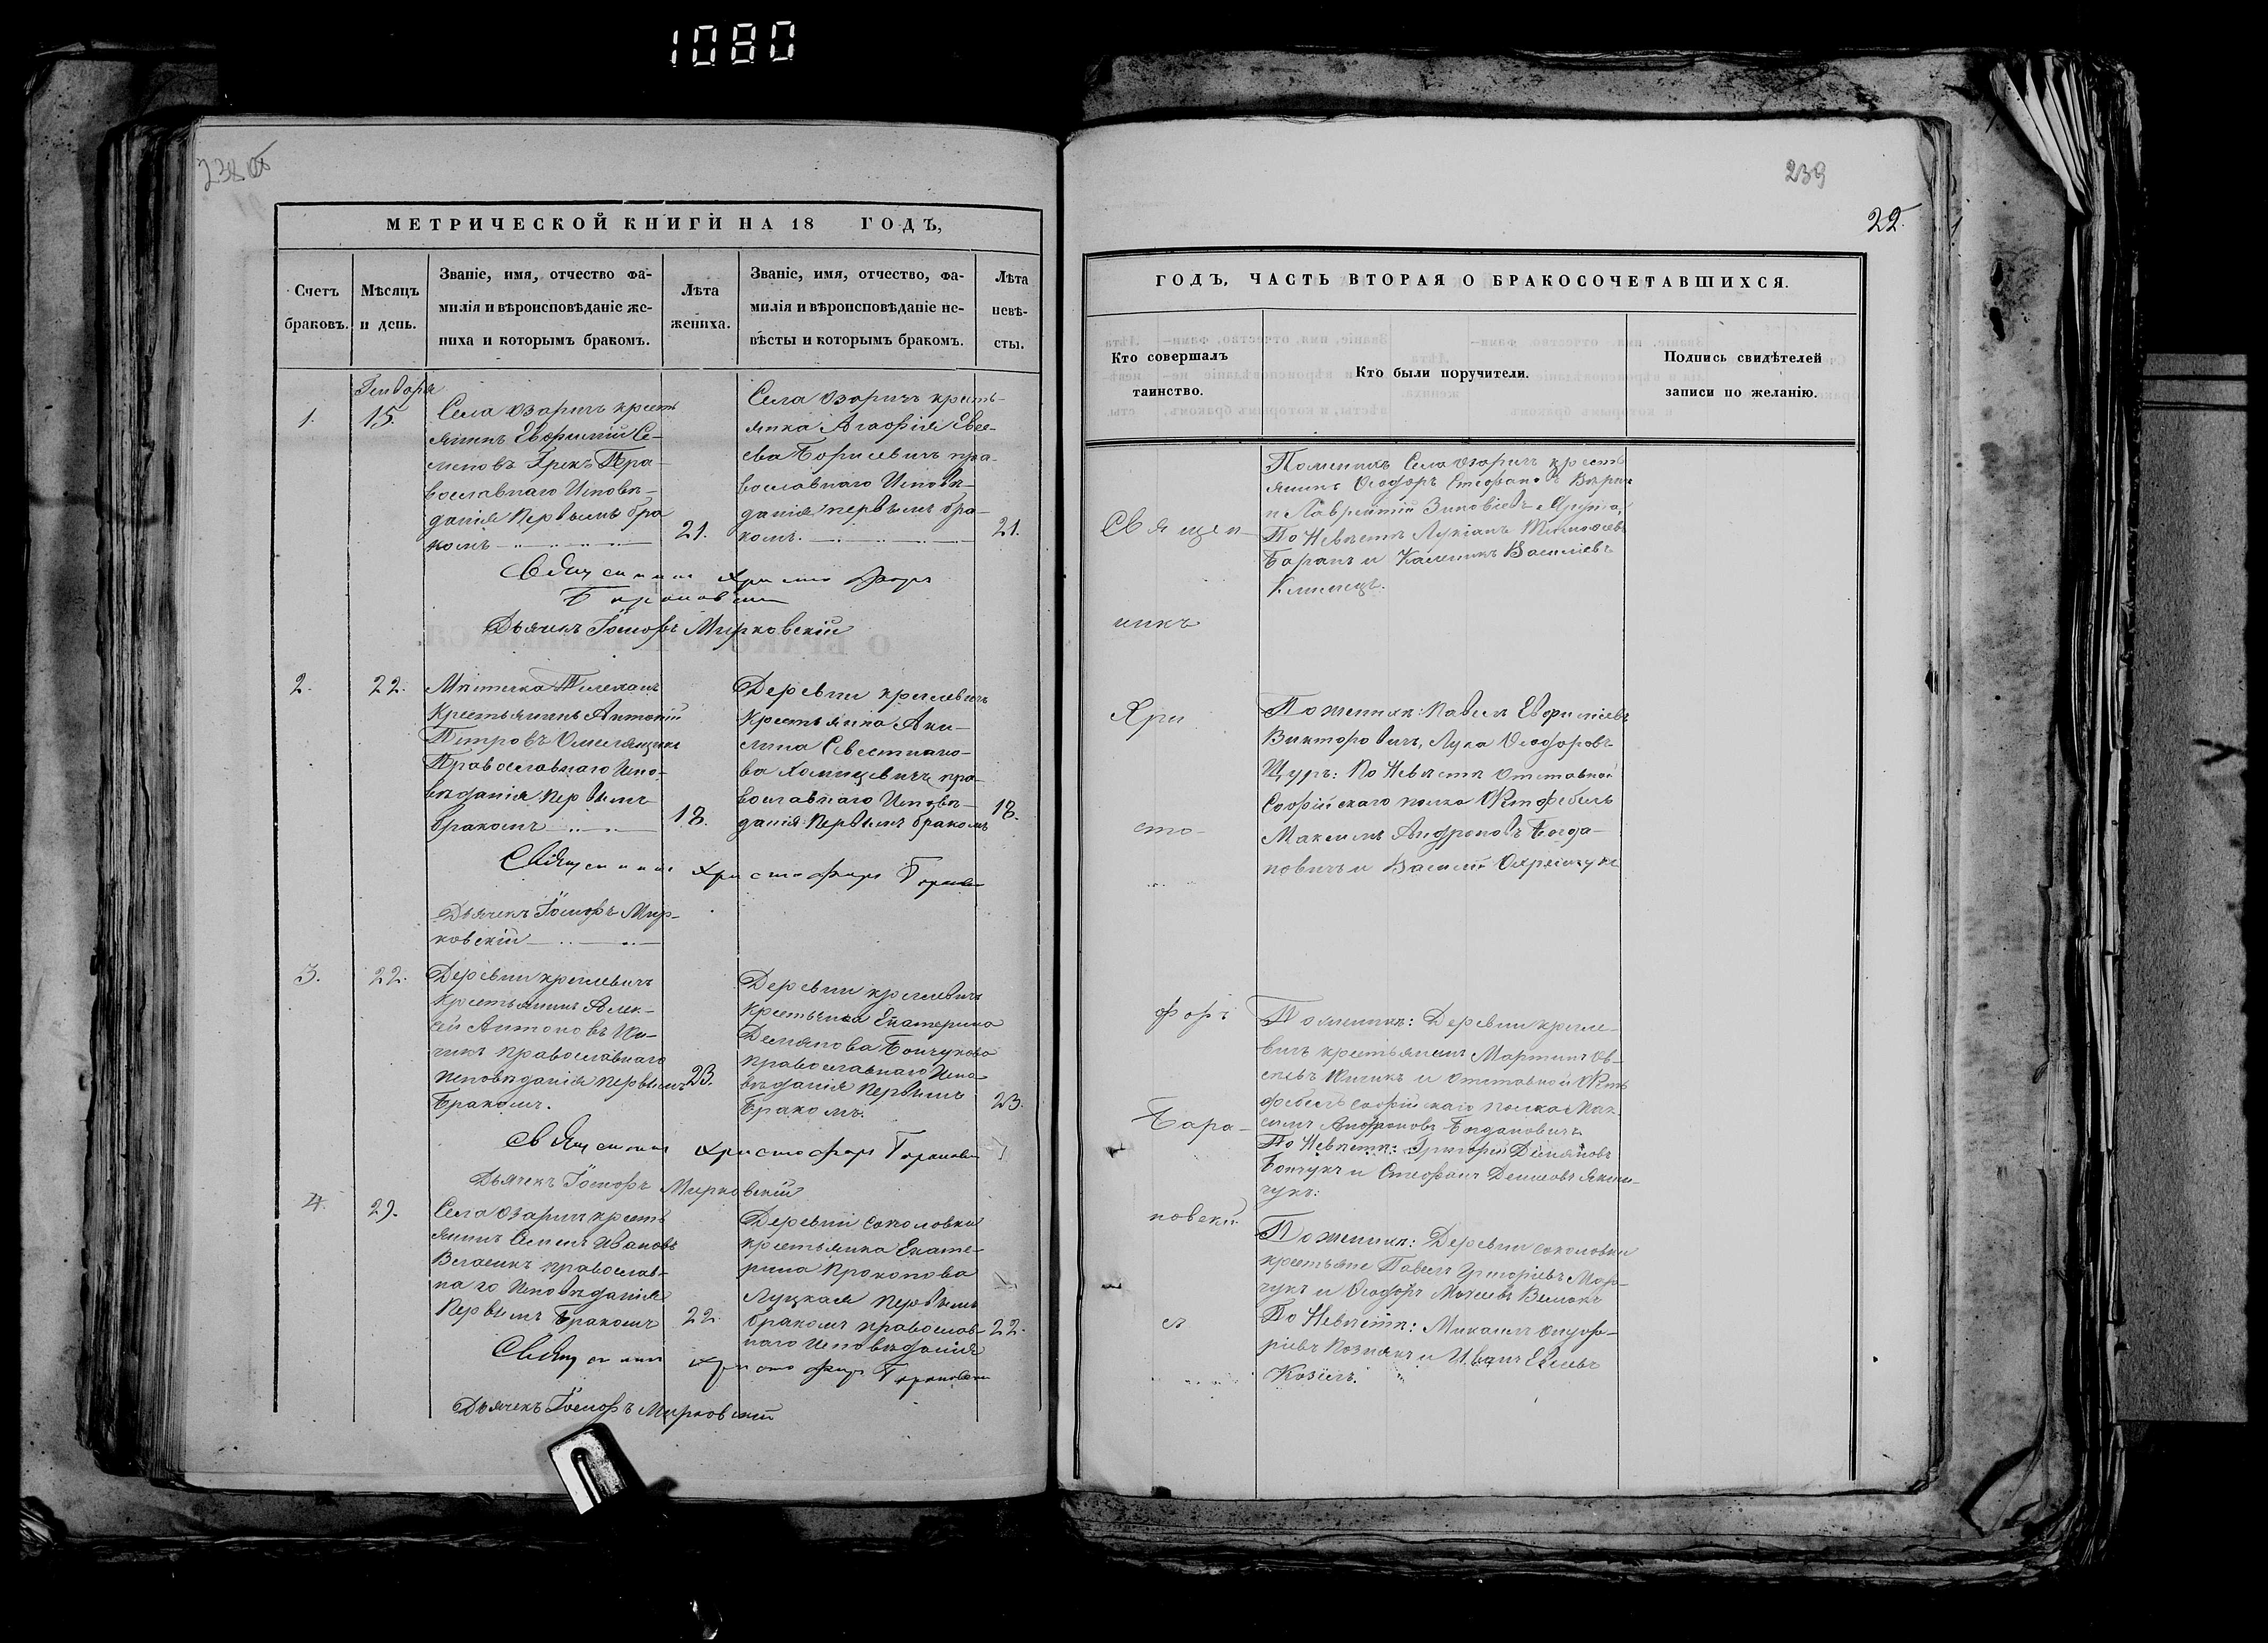 1080
238 об
МЕТРИЧЕСКОЙ КНИГИ НА 18 ГОДЪ,
Счетъ браковъ.
Мѣсяцъ и день.
Званіе, имя, отчество фа-
милія и вѣроисповѣданіе же-
ниха и которымъ бракомъ.
Лѣта
жениха.
Званіе, имя, отчество, фа-
милія и вѣроисповѣданіе не-
вѣсты и которымъ бракомъ.
Лѣта
невѣ-
сты.
Генваря
1.
15.
Села Озаричъ кресть
янинъ Евфимій Се-
меновъ Грекъ Пра-
вославнаго Исповѣ-
данія Первымъ бра
комъ
21.
Села Озаричъ кресть-
янка Агафія Евсе-
ева Борисевичъ пра-
вославнаго Исповѣ-
данія первымъ бра-
комъ.
21.
Священникъ Христофоръ
Барановскій
Дьячекъ Іосифъ Мирковскій
2.
22.
Мѣстечка Телеханъ
Крестьянинъ Антоній
Петровъ
Православнаго Испо-
вѣданія первымъ
бракомъ
18.
Деревни
Крестьянка Аки-
лина
ва Хомицевичъ пра-
вославнаго Исповѣ-
данія Первымъ бракомъ
18.
Священникъ Христофоръ
Дьячекъ Іосифъ Мир-
ковскій
3.
22.
Деревни
Крестьянинъ Алек-
сѣй Антоновъ
православнаго
исповѣданія первымъ
Бракомъ.
23.
Деревни
Крестьянка Екатерина
Демянова Бончукова
православнаго Испо-
вѣданія Первымъ
Бракомъ.
23.
Священникъ Христофоръ Барановскій
Дьячекъ Іосифъ Мирковскій
4.
29.
Села Озаричъ кресть
янинъ Семенъ Ивановъ
православ-
наго Исповѣданія
Первымъ Бракомъ
22.
Деревни Соколовки
крестьянка Екате-
рина Прокопова
Луцкая Первымъ
бракомъ православ-
наго Исповѣданія
22.
Священникъ Христофоръ Барановскій
Дьячекъ Іосифъ Мирковскій
239
22.
ГОДЪ, ЧАСТЬ ВТОРАЯ О БРАКОСОЧЕТАВШИХСЯ.
Кто совершалъ
таинство.
Кто были поручители.
Подпись свидѣтелей
записи по желанію.
Священ
никъ
Хри
сто-
форъ
Бара-
новскій
По женихѣ Села Озаричъ кресть
янинъ Ѳеодоръ Стефановъ
и Лаврентій Зиновіевъ
По Невѣстѣ Лукіанъ Тимофеевъ
Баранъ и Каленикъ Василіевъ
По женихѣ: Павелъ Евфиміевъ
Викторовичъ, Лука Ѳеодоровъ
Щуръ: По Невѣстѣ Отставной
Софійскаго полка
Максимъ Андроновъ Богда-
новичъ и Василій
По женихѣ: Деревни
крестьянинъ Мартинъ Ов-
и Отставной
фебель Софійскаго полка Мак-
симъ Андроновъ Богдановичъ
По Невѣстѣ: Григорій Демяновъ
Бончукъ и Стефанъ
чукъ:
По женихѣ: Деревни Соколовки
крестьяне Павелъ Григоріевъ
чукъ и Ѳеодоръ
По Невѣстѣ: Михаилъ Онуфр-
ріевъ Познякъ и Иванъ
Козелъ.